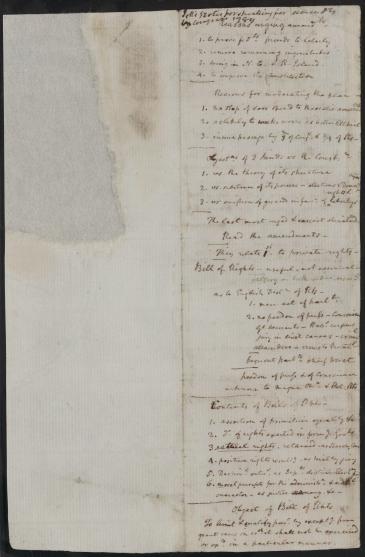 Notes for speaking for amendts
by Congress 1789
Reasons urging amendts
1. to prove fedts friends to liberty
2. remove remaining inquietudes
3. bring in N. C. & R. Island
4. to improve the Constitution
Reasons for moderating the plan
1. no stop if door opend to
2.
3. insure passage by 2/3 of Congs & 3/4 of Sts
Objectns of 3 kinds vs the Constn
1. vs the theory of its structure
2. vs substance of its powers - elections &
3. vs omission of guards in favr of rights & liberty
The last most urged & easiest obviated
Read the amendments -
They relate 1st to private rights -
Bill of Rights - useful - not essential -
as to English Decln of Rts -
1. mere act of parlt
2. no freedom of press - Conscience
Gl Warrants - Habs corpus
jury in Civil Causes - criml
attainders - arms to Protests
frequent Parlts - chief trust
freedom of press & of conscience
unknown to Magna Cha & Pet. Rts
Contents of Bill of Rhts
1. assertion of primitive equality &c
2. do of rights exerted in formg of Govts
3. natural rights, retained
4. positive rights resultg as trial by jury
5. Doctrinl artics as Depts distinct
6. moral precepts for the administrn & natl
character - as justice - economy - &c
Object of Bill of Rhts
To limit & qualify powr by exceptg from
grant cases in wch it shall not be exercised
or exd in a particular manner.